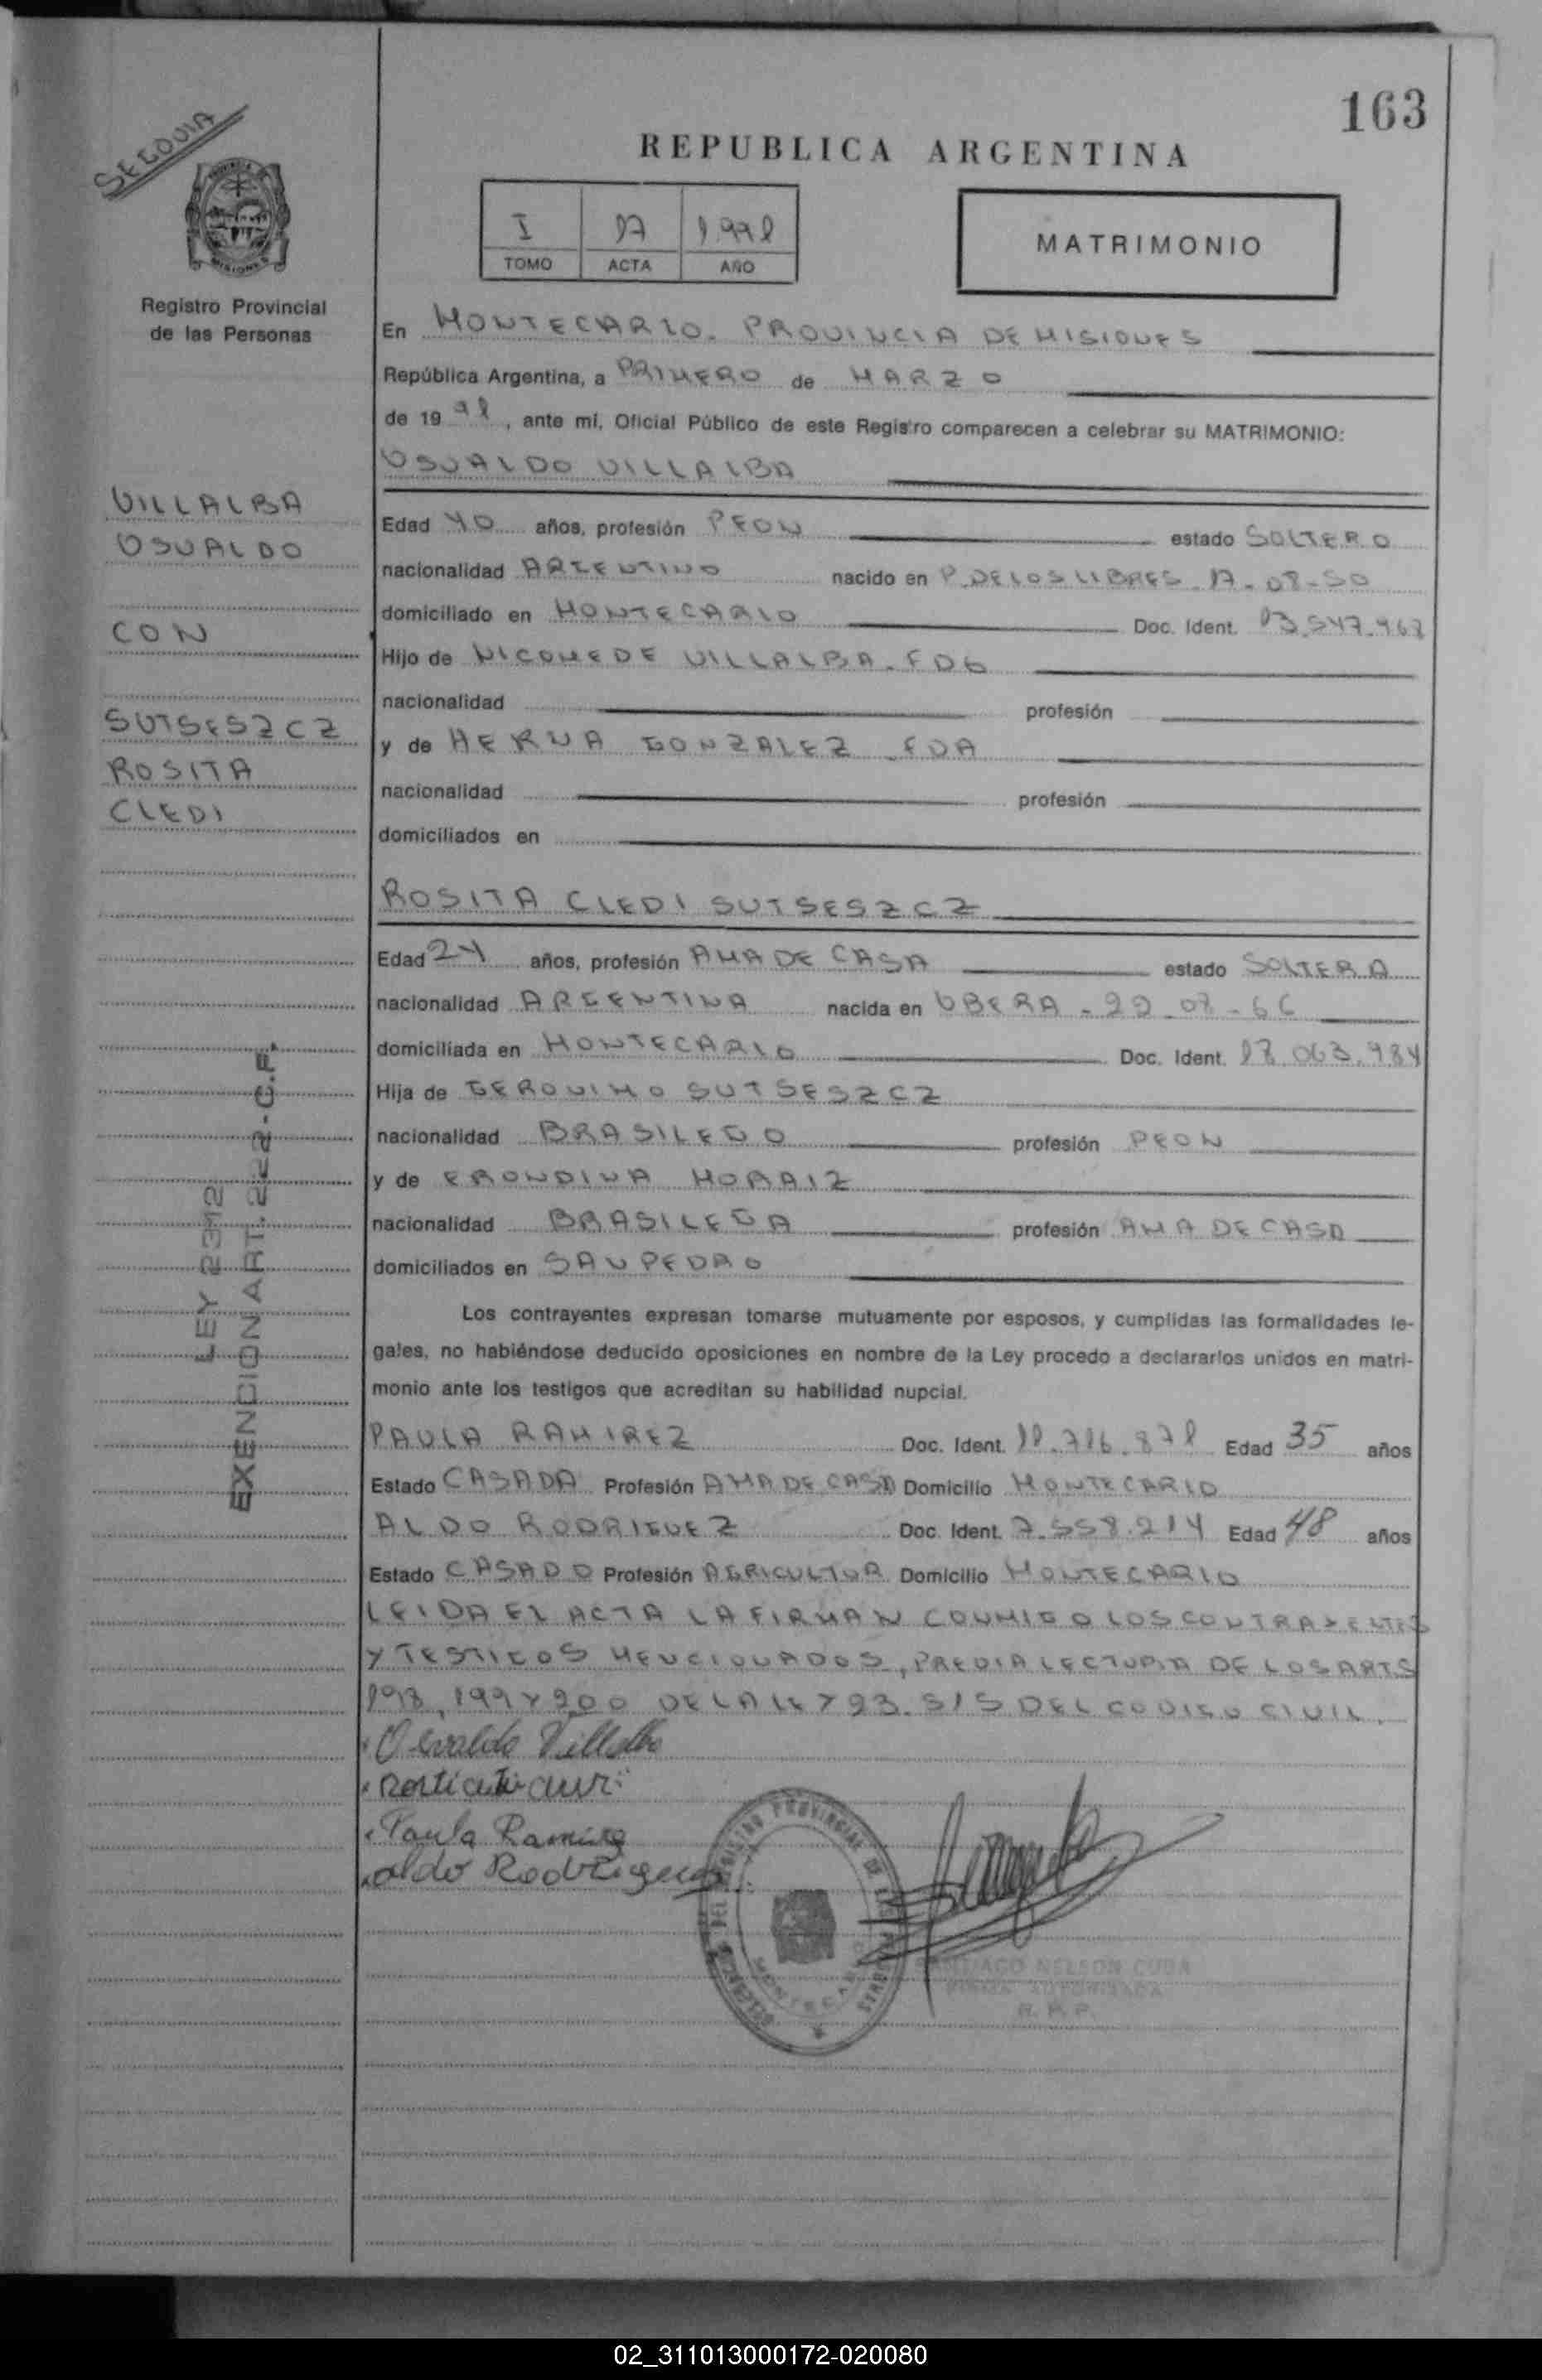 163
SEGOVIA
REPUBLICA ARGENTINA
I 17 1.991
TOMO ACTA AÑO
MATRIMONIO
MISIONES
Registro Provincial
de las Personas
En MONTECARLO. PROVINCIA DE MISIONES
República Argentina, a PRIMERO de MARZO
de 19 91, ante mí, Oficial Público de este Registro comparecen a celebrar su MATRIMONIO:
OSVALDO VILLALBA
VILLALBA
OSVALDO
CON
SUTSESZCZ
ROSITA
CLEDI
Edad 40 años, profesión PEON estado SOLTERO
nacionalidad ARGENTINO nacido en P. DE LOS LIBRES. 17-08-50
domiciliado en MONTECARLO Doc. Ident. 13.547.
Hijo de NICOMEDE VILLALBA. FDO
nacionalidad profesión
y de GONZALEZ FDA
nacionalidad profesión
domiciliados en
ROSITA CLEDI SUTSESZCZ
Edad 24 años, profesión AMA DE CASA estado SOLTERA
nacionalidad ARGENTINA nacida en OBERA - 22-08-66
domiciliada en MONTECARLO Doc. Ident. 18.063.984
Hija de GERONIMO SUTSESZCZ
nacionalidad BRASILEÑO profesión PEON
y de ERONDINA MORAIZ
nacionalidad BRASILEÑA profesión AMA DE CASA
domiciliados en SAN PEDRO
LEY 2312
EXENCION ART. 222 - C.F.
Los contrayentes expresan tomarse mutuamente por esposos, y cumplidas las formalidades le-
gales, no habiéndose deducido oposiciones en nombre de la Ley procedo a declararlos unidos en matri-
monio ante los testigos que acreditan su habilidad nupcial.
PAULA RAMIREZ Doc. Ident. Edad 35 años
Estado CASADA Profesión AMA DE CASA Domicilio MONTECARLO
ALDO RODRIGUEZ Doc. Ident. 7.558.214 Edad 48 años
Estado CASADO Profesión AGRICULTOR Domicilio MONTECARLO
LEIDA EL ACTA LA FIRMAN CONMIGO LOS CONTRAYENTES
Y TESTIGOS MENCIONADOS, PREVIA LECTURA DE LOS ARTS
198, 199 Y 200 DE LA LEY 23.515 DEL CODIGO CIVIL.
Osvaldo Villalba
Paula Ramirez
aldo Rodriguez
DEL REGISTRO PROVINCIAL DE LAS PERSONAS
MONTECARLO
SANTIAGO NELSON CUBA
FIRMA AUTORIZADA
R. P. P.
02_311013000172-020080